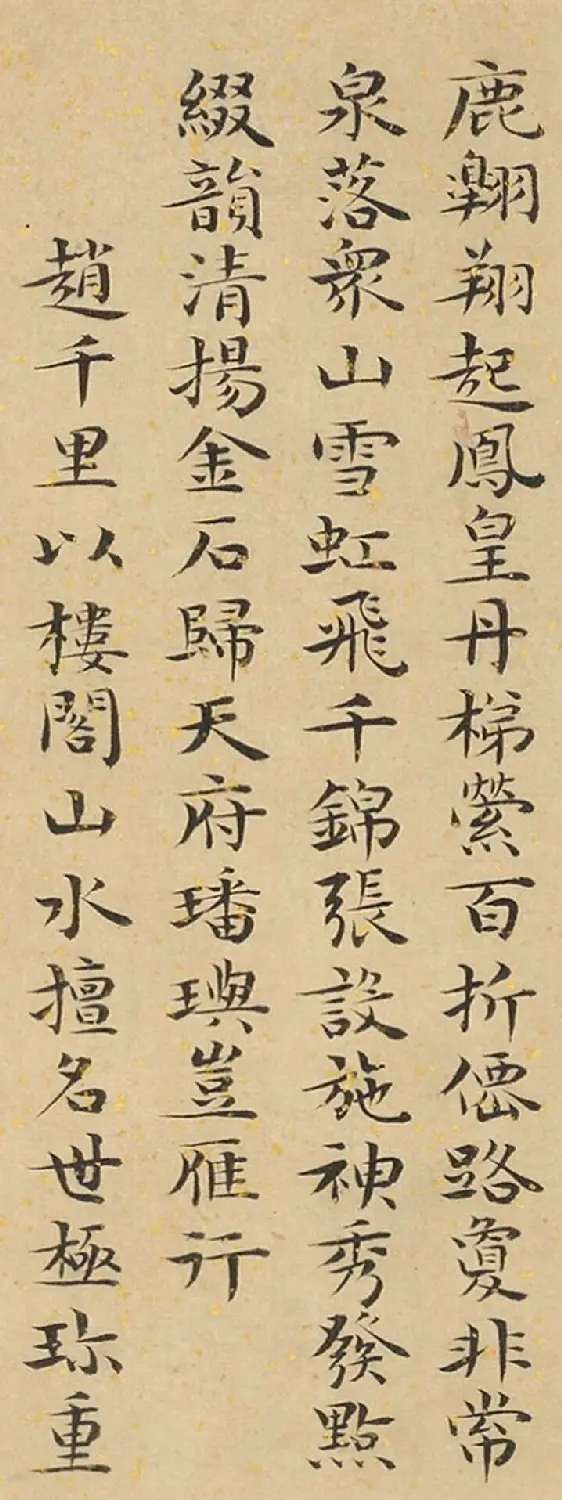 鹿翺翔起鳳皇丹梯縈百折僊路敻非常
泉落衆山雪虹飛千錦張設施神秀發點
綴韻清揚金石歸天府璠璵豈雁行
趙千里以樓閣山水擅名世極珎重